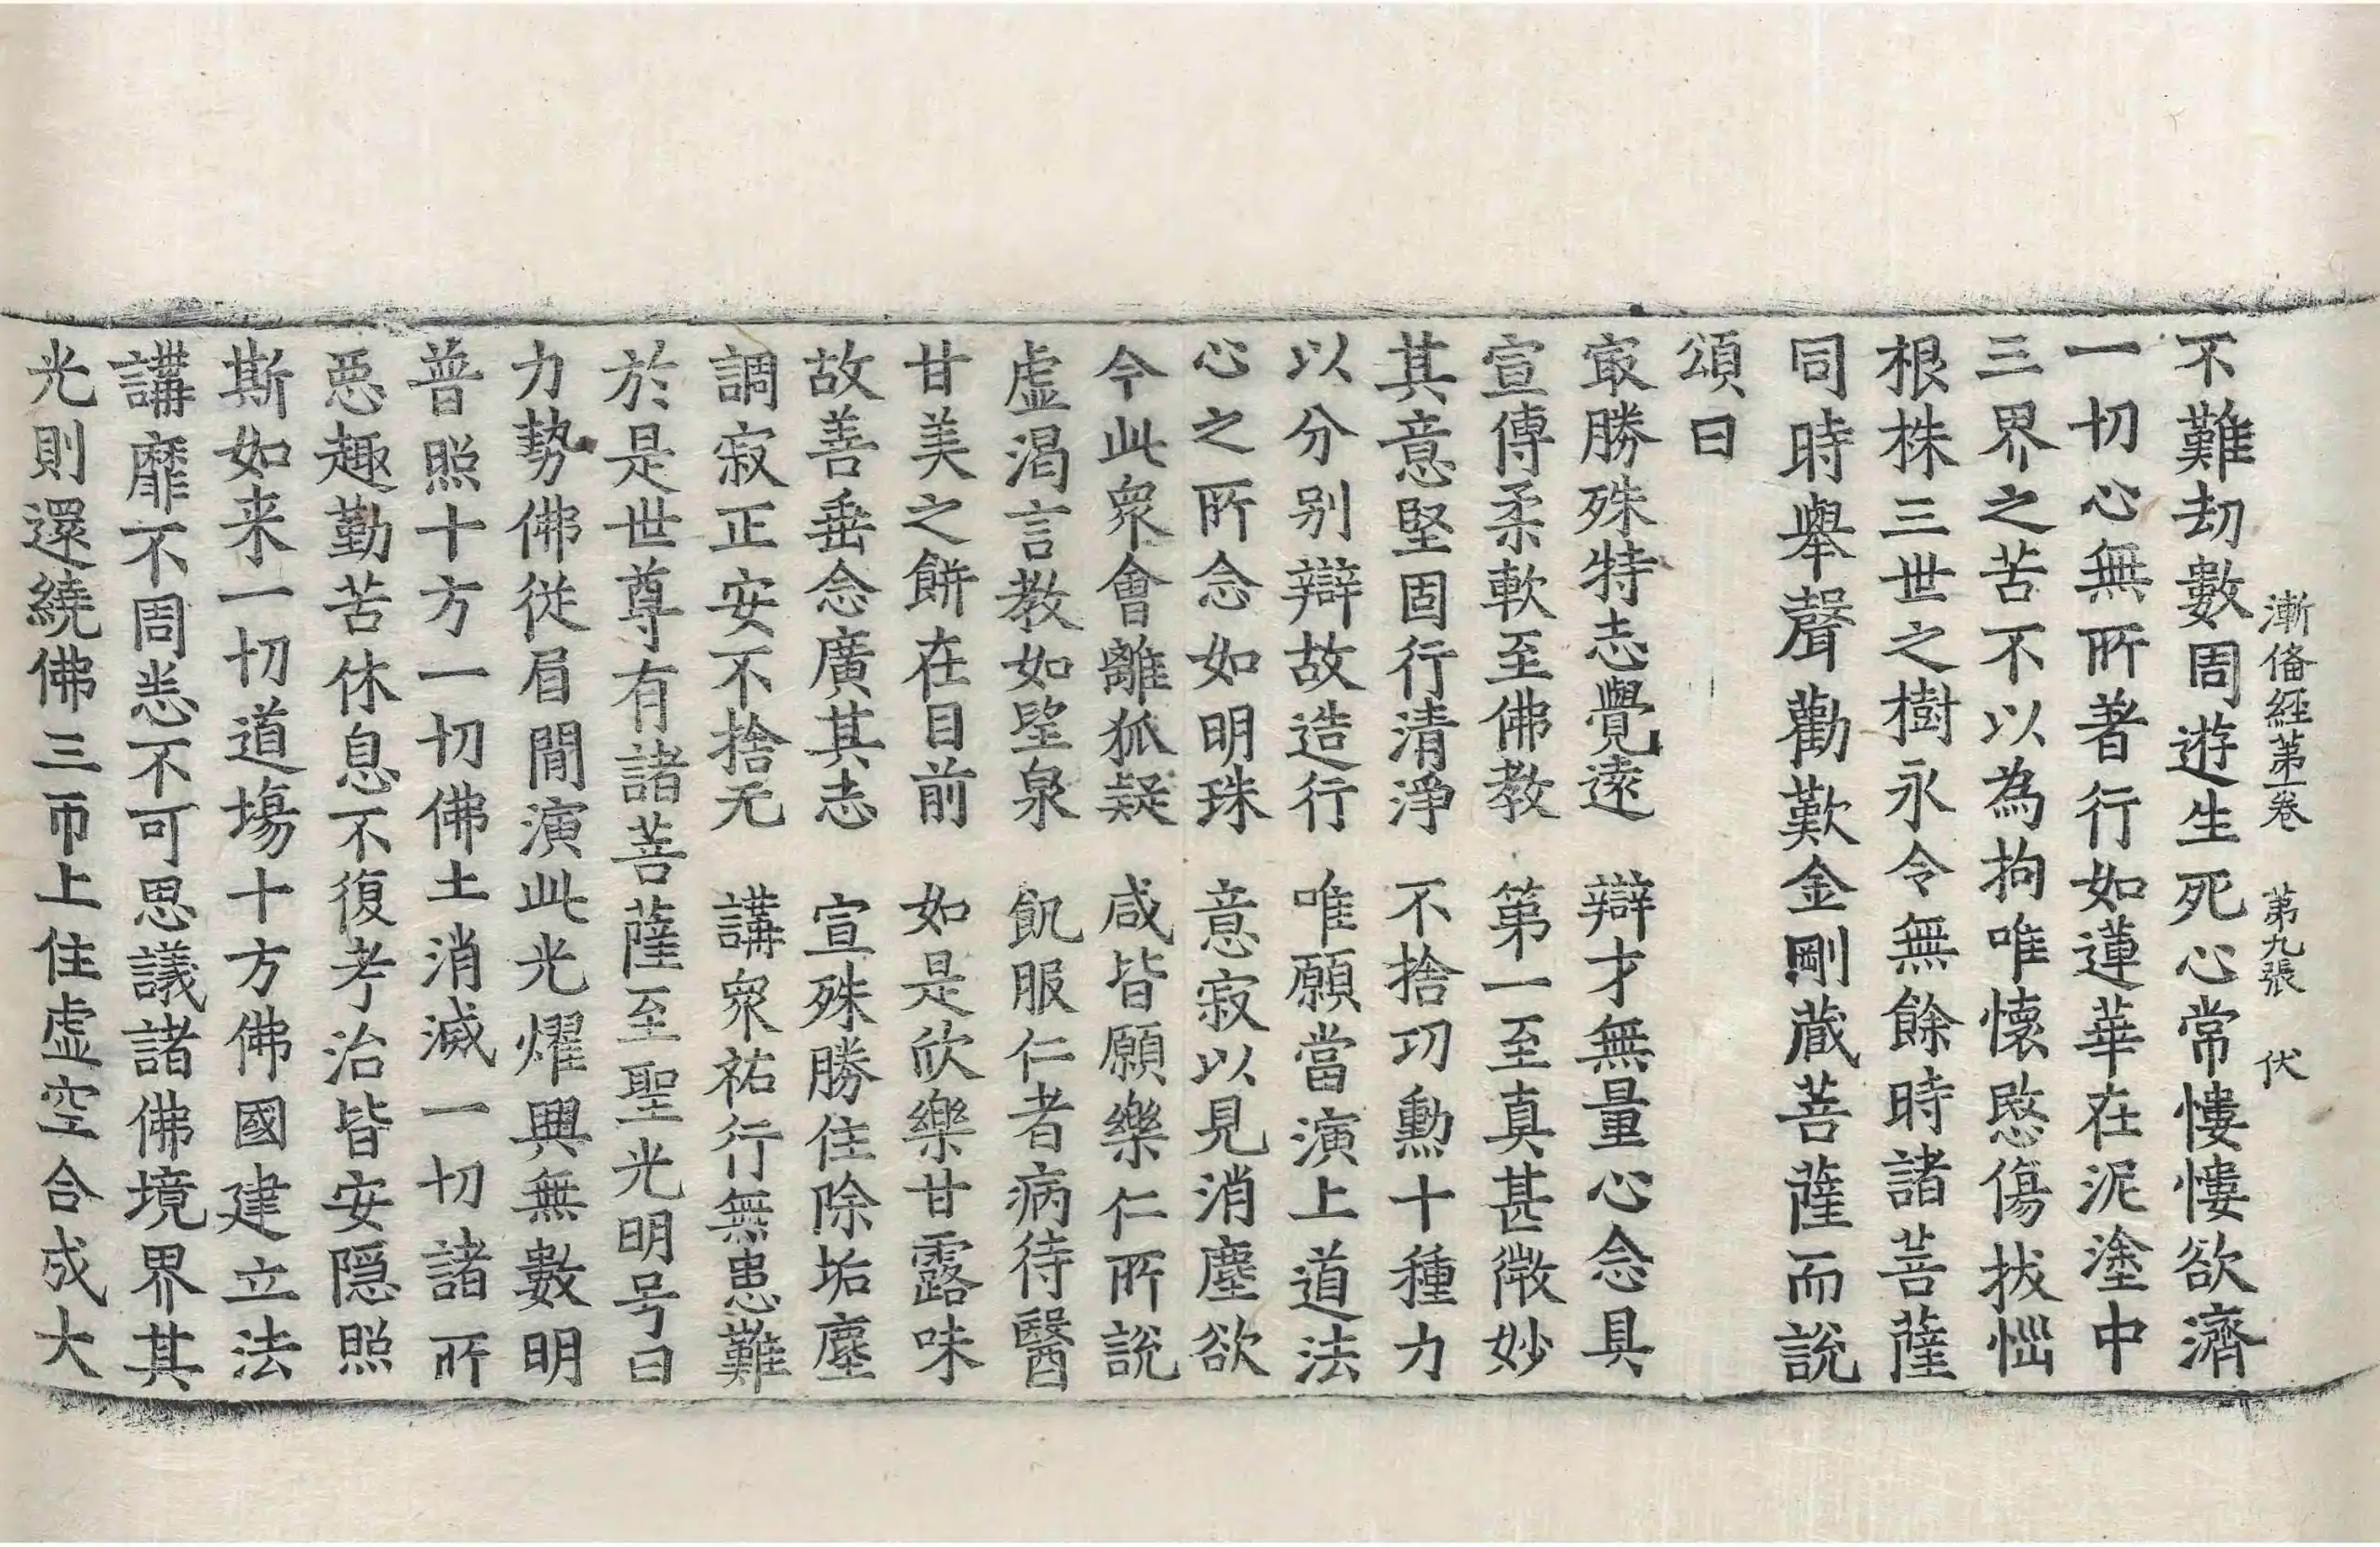 漸俻經第一卷 第九張 伏
不難劫數周遊生死心常慺慺欲濟
一切心無所著行如蓮華在泥塗中
三界之苦不以為拘唯懷愍傷拔惱
根株三世之樹永令無餘時諸菩薩
同時舉聲勸歎金剛蔵菩薩而說
頌曰
㝡勝殊特志覺遠 辯才無量心念具
宣傳柔軟至佛教 第一至真甚微妙
其意堅固行清淨 不捨功勳十種力
以分別辯故造行 唯願當演上道法
心之所念如明珠 意寂以見消塵欲
今此衆會離狐疑 咸皆願樂仁所說
虛渴言教如望泉 飢服仁者病待醫
甘美之餅在目前 如是欣樂甘露味
故善垂念廣其志 宣殊勝住除垢塵
調寂正安不捨无 講衆祐行無患難
於是世尊有諸菩薩至聖光明号曰
力勢佛從眉間演此光燿興無數明
普照十方一切佛土消滅一切諸所
惡趣勤苦休息不復考治皆安隱照
斯如来一切道場十方佛國建立法
講靡不周悉不可思議諸佛境界其
光則還繞佛三帀上住虛空合成大